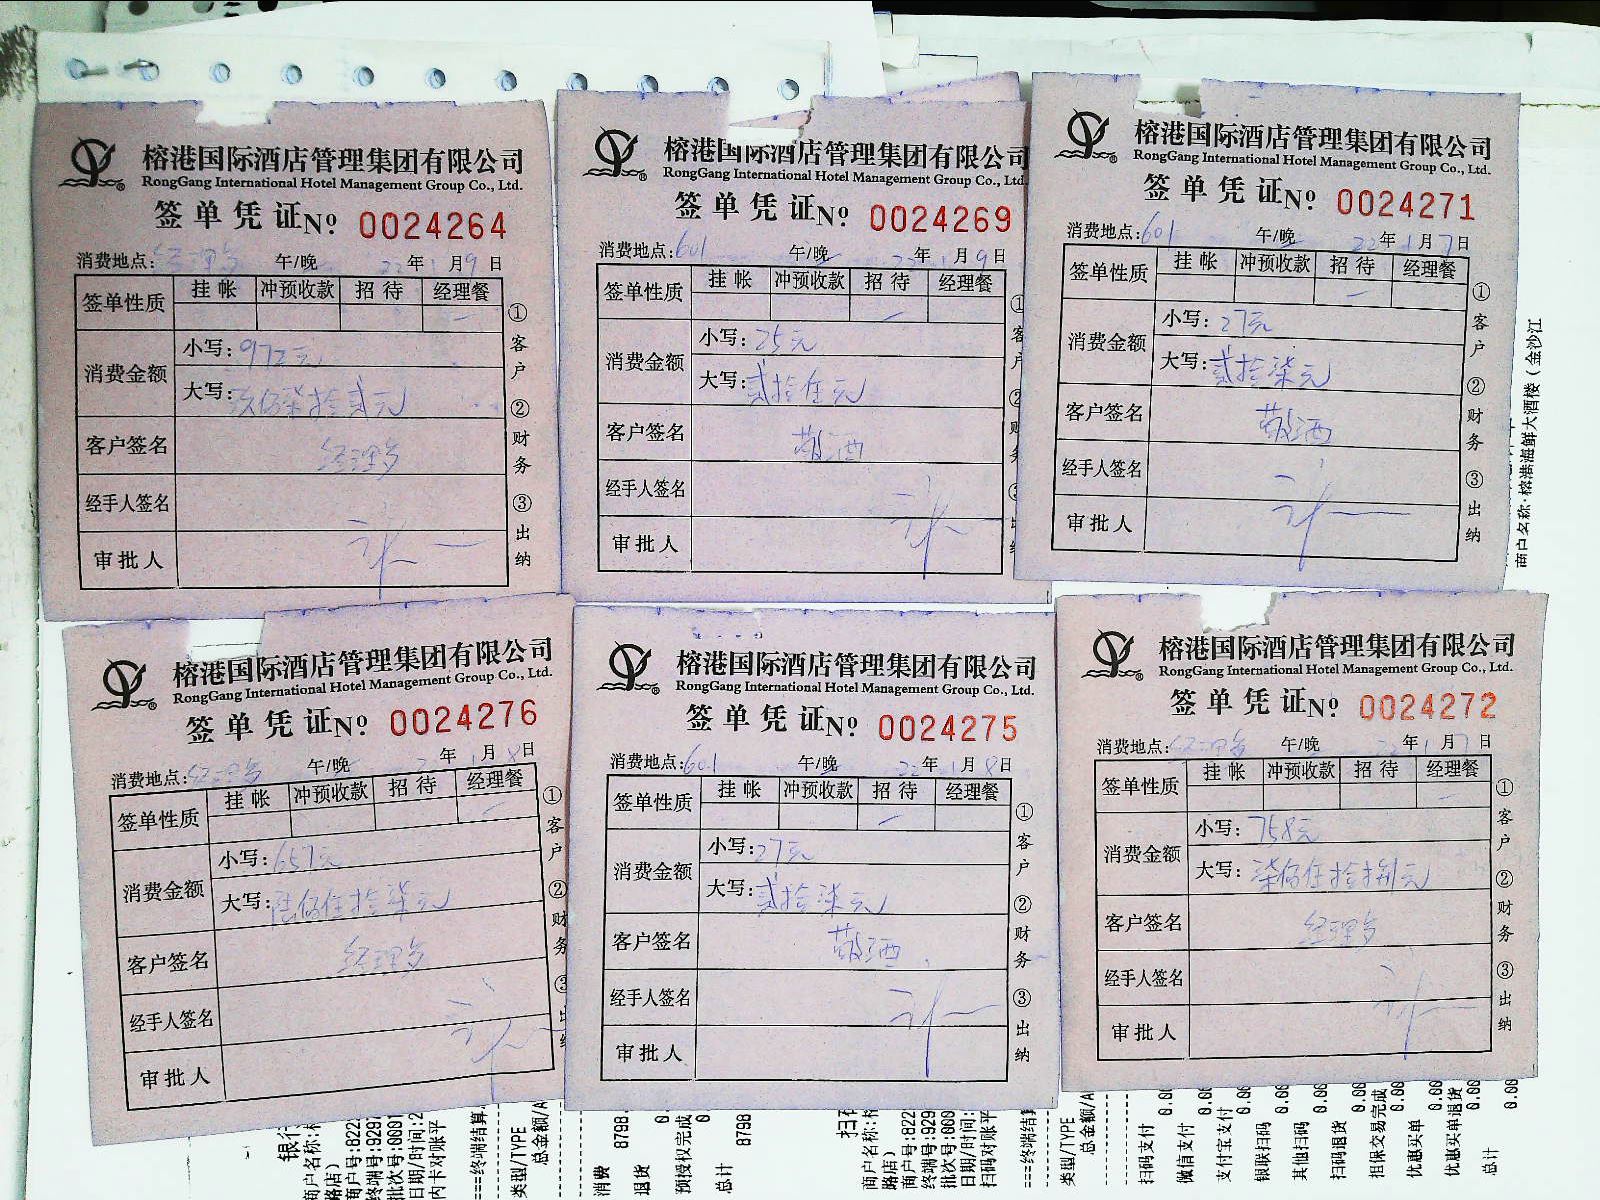 榕港国际酒店管理集团有限公司
RongGang International Hotel Management Group Co., Ltd.
签单凭证№ 0024264
消费地点:经理乡 午/晚 22年1月9日
签单性质 挂帐 冲预收款 招待 经理餐
消费金额 小写:972元
大写:玖佰柒拾贰元
客户签名 经理乡
经手人签名
审批人
①客户 ②财务 ③出纳
榕港国际酒店管理集团有限公司
RongGang International Hotel Management Group Co., Ltd.
签单凭证№ 0024269
消费地点:601 午/晚 22年1月9日
签单性质 挂帐 冲预收款 招待 经理餐
消费金额 小写:25元
大写:贰拾伍元
客户签名 敬酒
经手人签名
审批人
①客户 ②
榕港国际酒店管理集团有限公司
RongGang International Hotel Management Group Co., Ltd.
签单凭证№ 0024271
消费地点:601 午/晚 22年1月7日
签单性质 挂帐 冲预收款 招待 经理餐
消费金额 小写:27元
大写:贰拾柒元
客户签名 敬酒
经手人签名
审批人
①客户 ②财务 ③出纳
商户名称:榕港海鲜大酒楼(金沙江
榕港国际酒店管理集团有限公司
RongGang International Hotel Management Group Co., Ltd.
签单凭证№ 0024276
消费地点:经理乡 午/晚 22年1月8日
签单性质 挂帐 冲预收款 招待 经理餐
消费金额 小写:657元
大写:陆佰伍拾柒元
客户签名 经理乡
经手人签名
审批人
①客户 ②财务 ③出纳
榕港国际酒店管理集团有限公司
RongGang International Hotel Management Group Co., Ltd.
签单凭证№ 0024275
消费地点:601 午/晚 22年1月8日
签单性质 挂帐 冲预收款 招待 经理餐
消费金额 小写:27元
大写:贰拾柒元
客户签名 敬酒
经手人签名
审批人
①客户 ②财务 ③出纳
榕港国际酒店管理集团有限公司
RongGang International Hotel Management Group Co., Ltd.
签单凭证№ 0024272
消费地点:经理乡 午/晚 22年1月7日
签单性质 挂帐 冲预收款 招待 经理餐
消费金额 小写:758元
大写:柒佰伍拾捌元
客户签名 经理乡
经手人签名
审批人
①客户 ②财务 ③出纳
银行
商户名称:
路店)
商户号:822
终端号:9297
批次号:000
日期/时间:2
内卡对账平
===终端结算
类型/TYPE
总金额/A
消费 8798.
退货 0
预授权完成 0
总计 8798
扫
商户名称:
路店)
商户号:822
终端号:929
批次号:000
日期/时间:
扫码对账平
===终端结
类型/TYPE
总金额/A
扫码支付 0.00
微信支付 0.00
支付宝支付 0.00
银联扫码 0.00
其他扫码 0.00
扫码退货 0.00
担保交易完成 0.00
优惠买单 0.00
优惠买单退货 0.00
总计 0.00